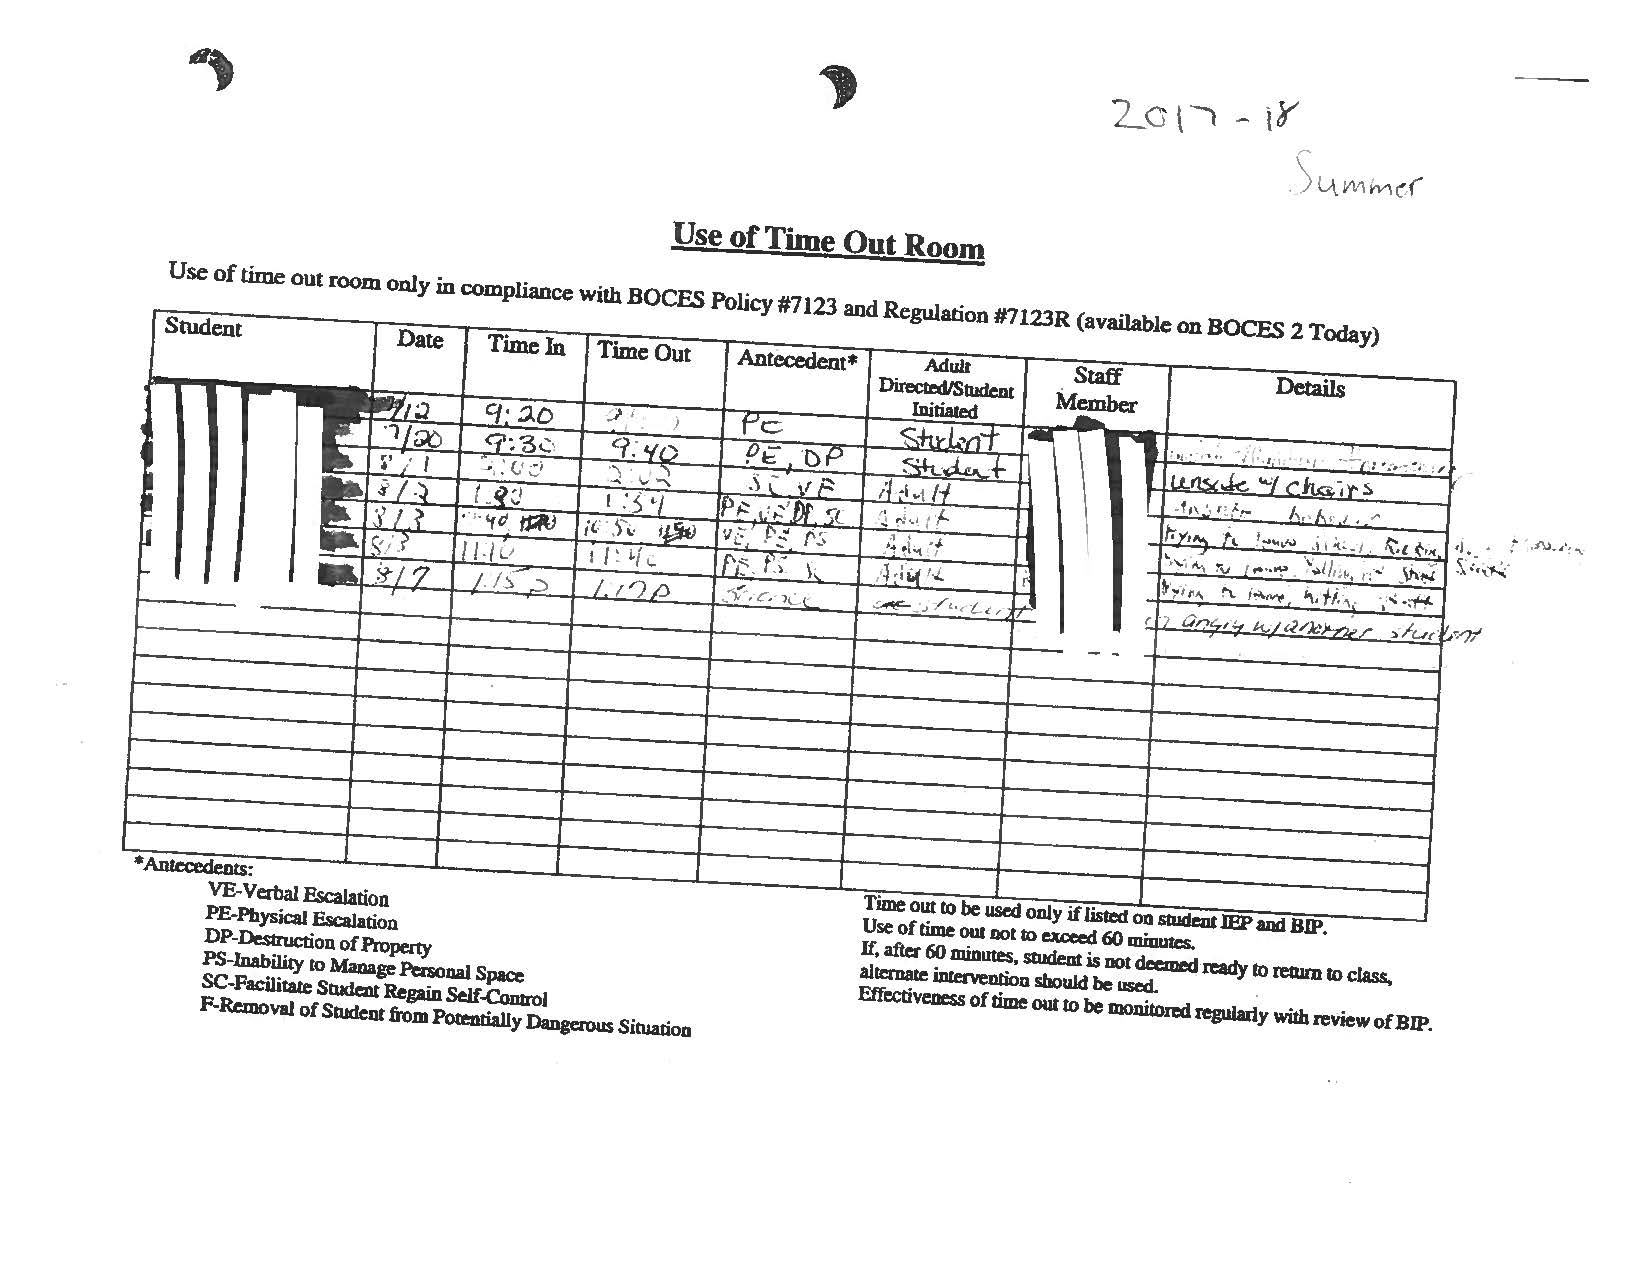 2017-18
Summer
Use of Time Out Room
Use of time out room only in compliance with BOCES Policy #7123 and Regulation #7123R (available on BOCES 2 Today)
Student Date Time In Time Out Antecedent* Adult Directed/Student Initiated Staff Member Details
7/12 9:20 PE Student
7/20 9:30 9:40 PE, DP Student unsafe w/ chairs
8/1 2:02 SC, VE Adult
8/2 1:54 PE, VE DP, SC Adult trying to
8/3 10:50 VE, PE, PS Adult
8/3 11:10 11:40 PE, PS Adult hitting
8/7 1:15 p 1:17p Science student angry w/ another student
*Antecedents:
VE-Verbal Escalation
PE-Physical Escalation
DP-Destruction of Property
PS-Inability to Manage Personal Space
SC-Facilitate Student Regain Self-Control
F-Removal of Student from Potentially Dangerous Situation
Time out to be used only if listed on student IEP and BIP.
Use of time out not to exceed 60 minutes.
If, after 60 minutes, student is not deemed ready to return to class,
alternate intervention should be used.
Effectiveness of time out to be monitored regularly with review of BIP.